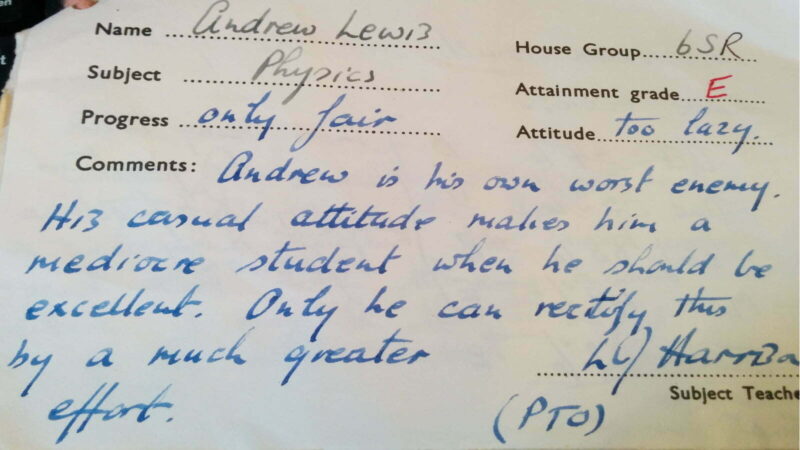 Name Andrew Lewis
House Group 6SR
Subject Physics
Attainment grade E
Progress only fair
Attitude too lazy.
Comments: Andrew is his own worst enemy.
His casual attitude makes him a
mediocre student when he should be
excellent. Only he can rectify this
by a much greater
effort.
Harrison
Subject Teache
(PTO)